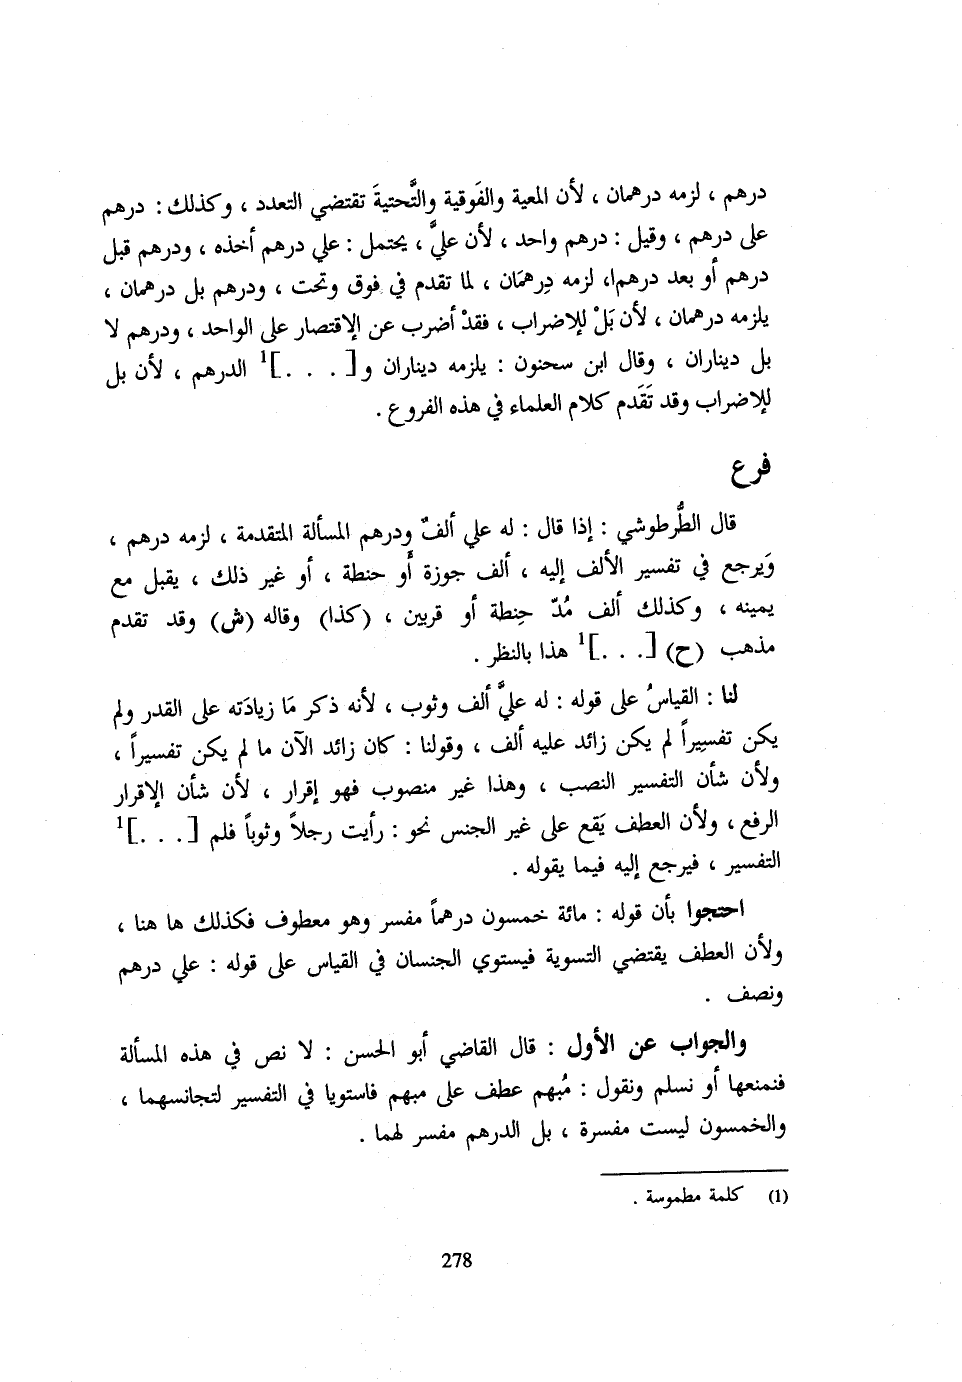 درهم ، لزمه درهمان ، لأن المعية والفَوقية والتَّحتيةَ تقتضي التعدد ، وكذلك : درهم
على درهم ، وقيل : درهم واحد ، لأن عليَّ ، يحتمل : علي درهم أخذه ، ودرهم قبل
درهم أو بعد درهم، لزمه دِرهمَان ، لما تقدم في فوق وتحت ، ودرهم بل درهمان ،
يلزمه درهمان ، لأن بَلْ للإضراب ، فقدْ أضرب عن الإقتصار على الواحد ، ودرهم لا
بل ديناران ، وقال ابن سحنون : يلزمه ديناران و[. . .]1 الدرهم ، لأن بل
للإضراب وقد تَقَدم كلام العلماء في هذه الفروع .
فرع
قال الطُّرطوشي : إذا قال : له علي ألفٌ ودرهم المسألة المتقدمة ، لزمه درهم ،
وَيرجع في تفسير الألف إليه ، ألف جوزة أو حنطة ، أو غير ذلك ، يقبل مع
يمينه ، وكذلك ألف مُدّ حِنطة أو قربين ، (كذا) وقاله (ش) وقد تقدم
مذهب (ح) [. . .]1 هذا بالنظر .
لنا : القياسُ على قوله : له عليَّ ألف وثوب ، لأنه ذكر مَا زيادَته على القدر ولم
يكن تفسِيراً لم يكن زائد عليه ألف ، وقولنا : كان زائد الآن ما لم يكن تفسيراً ،
ولأن شأن التفسير النصب ، وهذا غير منصوب فهو إقرار ، لأن شأن الإقرار
الرفع ، ولأن العطف يَقع على غير الجنس نحو : رأيت رجلاً وثوباً فلم [. . .]1
التفسير ، فيرجع إليه فيما يقوله .
احتجوا بأن قوله : مائة خمسون درهماً مفسر وهو معطوف فكذلك ها هنا ،
ولأن العطف يقتضي التسوية فيستوي الجنسان في القياس على قوله : علي درهم
ونصف .
والجواب عن الأول : قال القاضي أبو الحسن : لا نص في هذه المسألة
فنمنعها أو نسلم ونقول : مُبهم عطف على مبهم فاستويا في التفسير لتجانسهما ،
والخمسون ليست مفسرة ، بل الدرهم مفسر لهما .
(1) كلمة مطموسة .
278